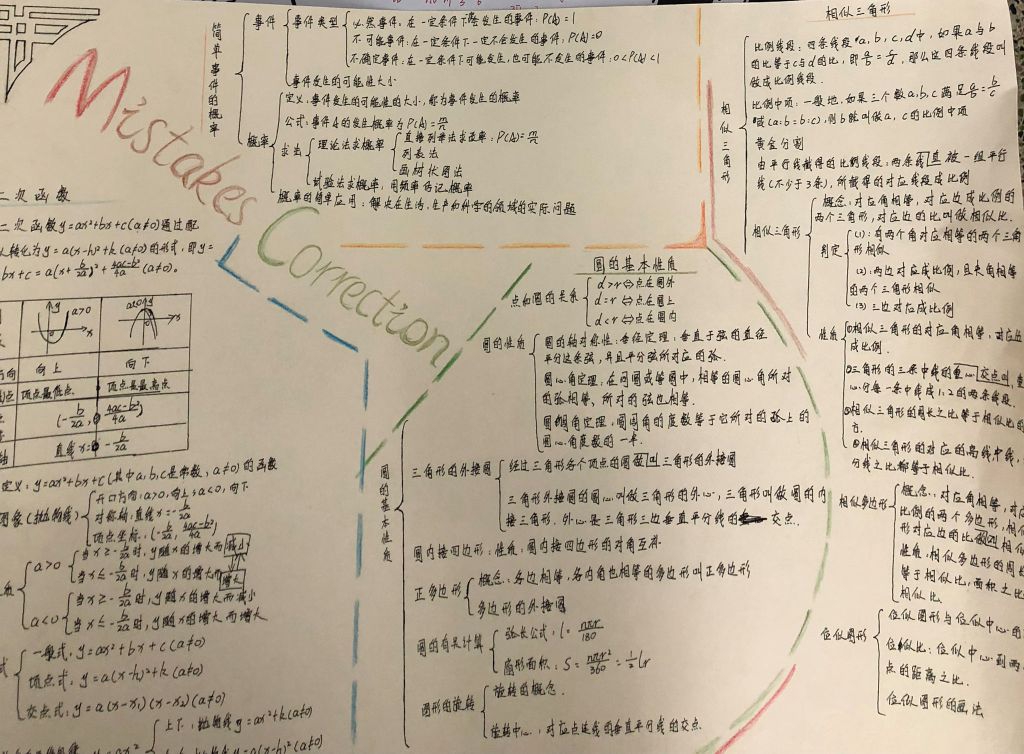 Mistakes Correction
简单事件的概率
事件
事件类型
必然事件：在一定条件下必会发生的事件：P(A)=1
不可能事件：在一定条件下一定不会发生的事件：P(A)=0
不确定事件：在一定条件下可能发生，也可能不发生的事件：0<P(A)<1
事件发生的可能性大小
概率
定义：事件发生的可能性的大小，称为事件发生的概率
公式：事件A的发生概率为P(A)=m/n
求法
理论法求概率
直接列举法求概率：P(A)=m/n
列表法
画树状图法
试验法求概率，用频率估计概率
概率的简单应用：解决在生活、生产和科学的领域的实际问题
二次函数
二次函数y=ax²+bx+c(a≠0)通过配
转化为y=a(x-h)²+k(a≠0)的形式，即y=
bx+c=a(x+b/2a)²+4ac-b²/4a(a≠0)。
y a>0 x
a<0 y x
向上 向下
顶点最低点 顶点是最高点
(-b/2a, 4ac-b²/4a)
直线x=-b/2a
定义：y=ax²+bx+c(其中a,b,c是常数，a≠0)的函数
图象(抛物线)
开口方向：a>0，向上；a<0，向下
对称轴：直线x=-b/2a
顶点坐标：(-b/2a, 4ac-b²/4a)
a>0
当x≥-b/2a时，y随x的增大而减小
当x≤-b/2a时，y随x的增大而增大
a<0
当x≥-b/2a时，y随x的增大而减小
当x≤-b/2a时，y随x的增大而增大
式
一般式：y=ax²+bx+c(a≠0)
顶点式：y=a(x-h)²+k(a≠0)
交点式：y=a(x-x₁)(x-x₂)(a≠0)
y=ax²
上下：抛物线y=ax²+k(a≠0)
y=a(x-h)²(a≠0)
圆的基本性质
圆的基本性质
点和圆的关系
d>r⇔点在圆外
d=r⇔点在圆上
d<r⇔点在圆内
圆的性质
圆的轴对称性：垂径定理：垂直于弦的直径
平分这条弦，并且平分弦所对应的弧。
圆心角定理：在同圆或等圆中，相等的圆心角所对
的弧相等，所对的弦也相等。
圆周角定理，圆周角的度数等于它所对的弧上的
圆心角度数的一半。
三角形的外接圆
经过三角形各个顶点的圆做叫三角形的外接圆
三角形外接圆的圆心叫做三角形的外心，三角形叫做圆的内
接三角形．外心是三角形三边垂直平分线的交点．
圆内接四边形：性质：圆内接四边形的对角互补
正多边形
概念：各边相等，各内角也相等的多边形叫正多边形
多边形的外接圆
圆的有关计算
弧长公式：l=nπr/180
扇形面积：S=nπr²/360=½lr
图形的旋转
旋转的概念．
旋转中心：对应点连线的垂直平分线的交点．
相似三角形
相似三角形
比例线段：四条线段a,b,c,d中，如果a与b
的比等于c与d的比，即a/b=c/d，那么这四条线段叫
做成比例线段．
比例中项：一般地，如果三个数a,b,c满足a/b=b/c
或(a:b=b:c)，则b就叫做a，c的比例中项
黄金分割
由平行线截得的比例线段：两条线直被一组平行
线(不少于3条)，所截得的对应线段成比例
相似三角形
概念：对应角相等，对应边成比例的
两个三角形，对应边的比叫做相似比．
判定
(1)：有两个角对应相等的两个三角
形相似
(2)：两边对应成比例，且夹角相等
的两个三角形相似
(3) 三边对应成比例
性质
①相似三角形的对应角相等，对应边
成比例．
②三角形的三条中线的重心交点叫，重
心分每一条中线成1:2的两条线段．
③相似三角形的周长之比等于相似比的
方．
④相似三角形的对应的高线中线，
分线之比都等于相似比．
相似多边形
概念：对应角相等，对应
比例的两个多边形，相似
形对应边的比做叫相似
性质，相似多边形的周长
等于相似比，面积之比
相似比．
位似图形
位似图形与位似中心：的
位似比：位似中心到两
点的距离之比．
位似图形的画法